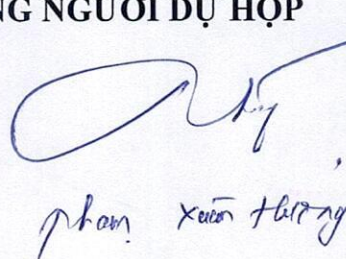 NG NGƯỜI DỰ HỌP
phạm xuân thưởng